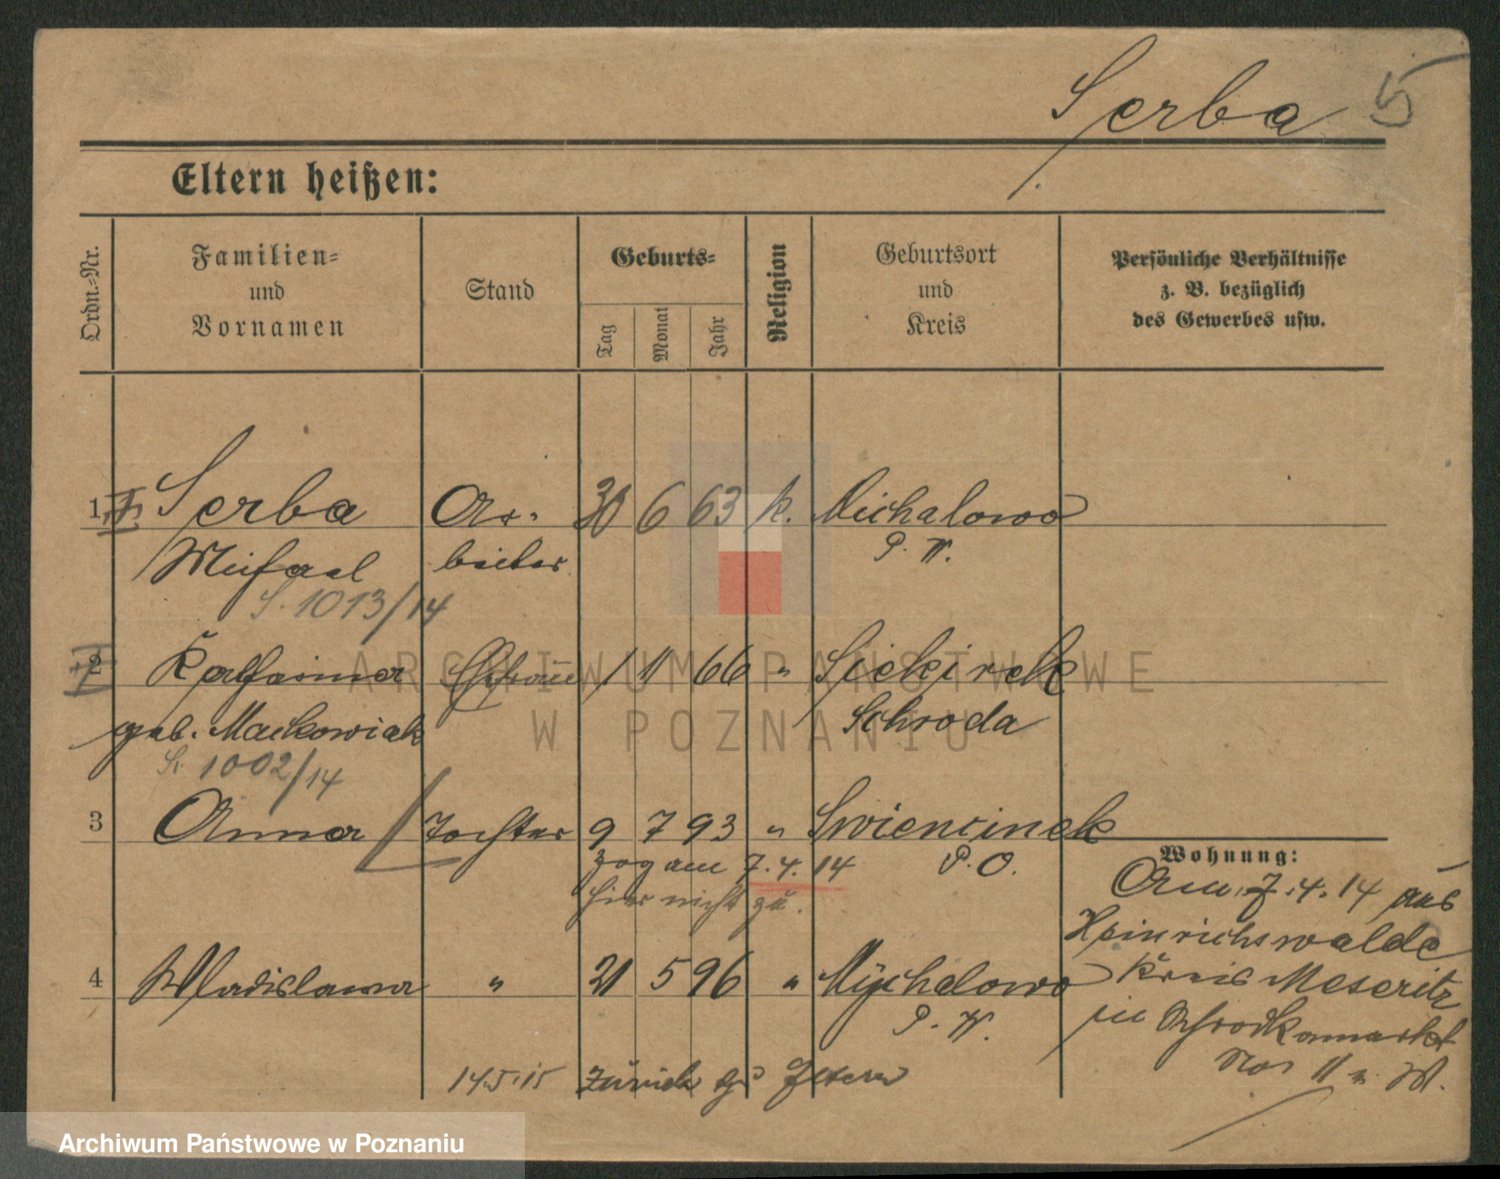 Serba 5
Eltern heißen:
Ordn.-Nr.
Familien-
und
Vornamen
Stand
Geburts-
Tag
Monat
Jahr
Religion
Geburtsort
und
Kreis
Persönliche Verhältnisse
z. B. bezüglich
des Gewerbes usw.
1 I. Serba Ar- 30 6 63 k. Michalowo
Michael beiter P. W.
S. 1013/14
2 II Katharina Ehefrau 1 11 66 " Siekirek
geb. Maćkowiak Schroda
S. 1002/14
3 Anna Tochter 9 7 93 " Swiencinek
zog am 7.4.14 P. O.
hier nicht zu.
4 Wladislawa " 21 5 96 " Mychalowo
P. W.
14.5.15 zurück zu Eltern
Wohnung:
Am 7.4.14 aus
Heinrichswalde
Kreis Meseritz
in Schrodkamarkt
No 11 n. W.
ARCHIWUM PAŃSTWOWE
W POZNANIU
Archiwum Państwowe w Poznaniu